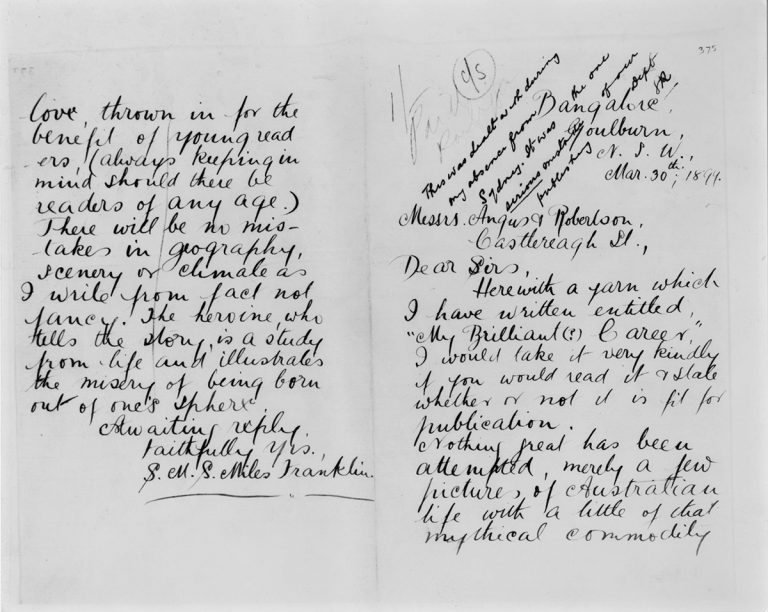 375
c/s
This was dealt with during
my absence from
Sydney. It was the one
serious mistake of our
publishing Dept
Bangalore,
Goulburn,
N. S. W.,
Mar. 30th, 1899.
Messrs. Angus & Robertson,
Castlereagh St.,
Dear Sirs,
Herewith a yarn which
I have written entitled,
"My Brilliant(?) Career."
I would take it very kindly
if you would read it & state
whether or not it is fit for
publication.
Nothing great has been
attempted, merely a few
pictures of Australian
life with a little of that
mythical commodity
love, thrown in for the
benefit of young read
ers, (always keeping in
mind should there be
readers of any age.)
There will be no mis-
takes in geography,
scenery or climate as
I write from fact not
fancy. The heroine, who
tells the story, is a study
from life and illustrates
the misery of being born
out of one's sphere.
Awaiting reply,
Faithfully Yrs.,
S. M. S. Miles Franklin.